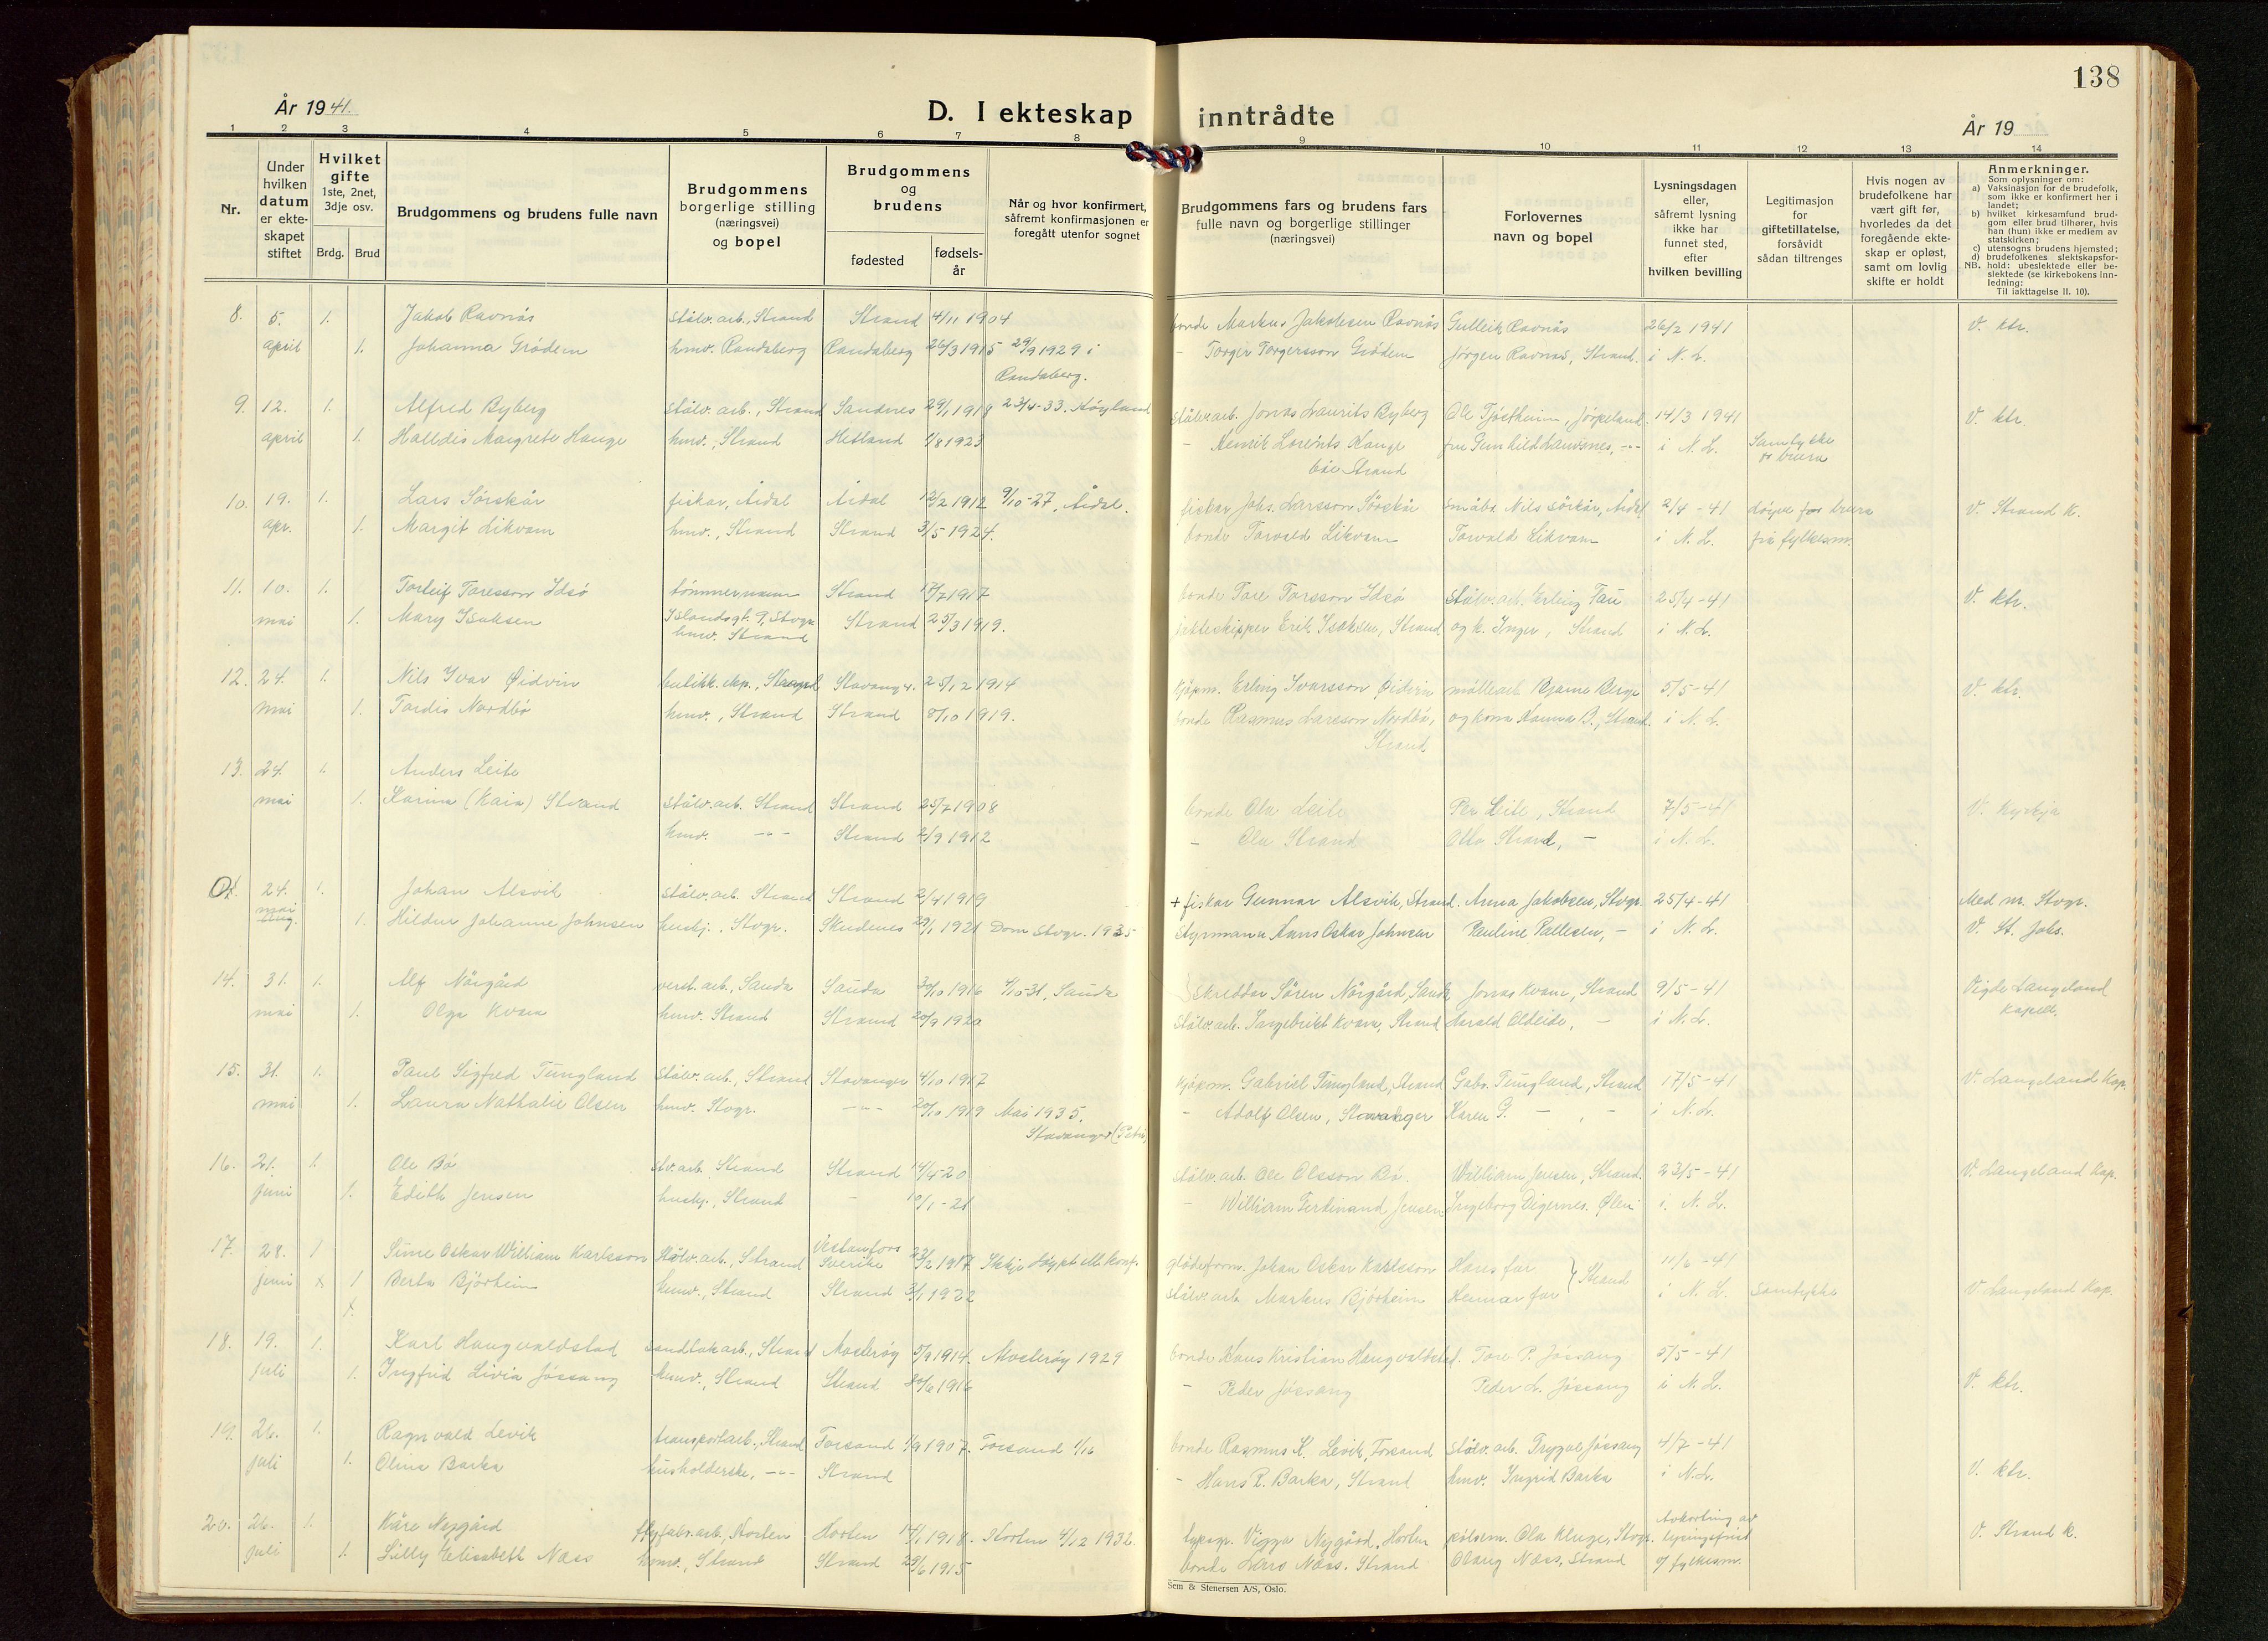 138
År 1941.
D. I ekteskap inntrådte
År 19
1 2 3 4 5 6 7 8 9 10 11 12 13 14
Nr.
Under hvilken datum er ekte-skapet stiftet
Hvilket gifte 1ste, 2net, 3dje osv.
Brdg. Brud
Brudgommens og brudens fulle navn
Brudgommens borgerlige stilling (næringsvei) og bopel
Brudgommens og brudens
fødested
fødsels-år
Når og hvor konfirmert, såfremt konfirmasjonen er foregått utenfor sognet
Brudgommens fars og brudens fars fulle navn og borgerlige stillinger (næringsvei)
Forlovernes navn og bopel
Lysningsdagen eller, såfremt lysning ikke har funnet sted, efter hvilken bevilling
Legitimasjon for giftetillatelse, forsåvidt sådan tiltrenges
Hvis nogen av brudefolkene har vært gift før, hvorledes da det foregående ekte-skap er opløst, samt om lovlig skifte er holdt
Anmerkninger.
Som oplysninger om:
a) Vaksinasjon for de brudefolk, som ikke er konfirmert her i landet;
b) hvilket kirkesamfund brud-gom eller brud tilhører, hvis han (hun) ikke er medlem av statskirken;
c) utensogns brudens hjemsted;
d) brudefolkenes slektskapsfor-hold: ubeslektede eller be-slektede (se kirkebokens inn-ledning:
NB. Til iakttagelse II. 10).
8. 5. 1. Jakob Ravnås stålv.arb., Strand Strand 4/11 1904 bonde Markus Jakobsen Ravnås Gulleik Ravnås 26/2 1941 V. ktr.
april 1. Johanna Grødem hmv. Randaberg Randaberg 26/3 1915 29/9 1929 i - Torger Torgersson Grødem Jørgen Ravnås, Strand. i N. L.
Randaberg.
9. 12. 1. Alfred Byberg stålv. arb., Strand Sandnes 29/1 1918 23/4-33. Høyland stålv.arb. Jonas Laurits Byberg Ole Tjøstheim, Jørpeland 14/3 1941 V. ktr.
april 1. Halldis Margrete Hauge hmv., Strand Hetland 1/8 1923 - Henrik Lorents Hauge fru Gunhild i N. L. Samtykke
Strand
10. 19. 1. Lars Sørskår fiskar, Årdal Årdal 12/2 1912 9/10-27, Årdal. fiskar Johs. Larsson Sørskår småbr. Nils Sørskår, Årdal 2/4 - 41 Løyve for brura V. Strand K.
apr. 1. Margit Likvam hmv., Strand Strand 3/5 1924. bonde Torvald Likvam Torvald Likvam i N. L. frå fylkesm.
11. 10. 1. Torleif Toresson Idsø tømmermann Strand 17/7 1917 bonde Tore Torsson Idsø stålv. arb. Erling Tau 25/4 - 41 V. ktr.
mai 1. Mary Isaksen Islandsgt. 9, Stvgr. Strand 25/3 1919. jakteskipper Erik Isaksen, Strand og k. Inger, Strand i N. L.
hmv. Strand
12. 24. 1. Nils Ivar Øidvin butikk. eksp., Strand Stavang. 25/12 1914 kjøpm. Erling Ivarsson Øidvin mølle arb Bjarne Berge 5/5 - 41 V. ktr.
mai 1. Tordis Nordbø hmv., Strand Strand 8/10 1919. bonde Rasmus Larsson Nordbø, og kona Hanna B., Strand. i N. L.
Strand
13. 24. 1. Anders Leite
mai 1. Karina (Kaia) Strand stålv. arb. Strand Strand 25/7 1908 bonde Ola Leite Per Leite, Strand 7/5 - 41 V. kyrkja
hmv. -"- Strand 2/9 1912 - Ola Strand Otto Strand, - i N. L.
24. 1. Johan Alsvik stålv. arb. Strand Strand 2/4 1919 + fiskar Gunnar Alsvik, Strand. Anna Jakobsen, Stvgr. 25/4-41 Med m. Stvgr.
mai 1. Hildur Johanne Johnsen hushj., Stvgr. Skudenes 29/1 1921 Dom Stvgr. 1935 styrmann Hans Oskar Johnsen Pauline Pallesen, - i N. L. V. St. Johs.
14. 31. 1. Alf Nørgård verst. arb., Sauda Sauda 30/10 1916 4/10-31, Sauda skreddar Søren Nørgård, Sauda Jonas Kvam, Strand 9/5 - 41 Vigde Langeland
mai 1. Olga Kvam hmv. Strand Strand 20/9 1920 stålv. arb. Ingebrikt Kvam, Strand Harald Oldeide, - i N. L. kapell.
15. 31. 1. Paul Sigfred Tungland stålv. arb., Strand Stavanger 4/10 1917 kjøpm. Gabriel Tungland, Strand Gabr. Tungland, Strand 17/5-41 V. Langeland kap.
mai 1. Laura Nathalie Olsen hmv. Stvgr. -"- 20/10 1919 Mai 1935, - Adolf Olsen, Stavanger Karen G. - , - i N. L.
Stavanger (Petri)
16. 21. 1. Ole Bø stv. arb. Strand Strand 14/4-20 stålv. arb. Ole Olsson Bø. William Jensen, Strand. 23/5-41 V. Langeland kap.
juni 1. Edith Jensen hushj., Strand - 10/1-21 - William Ferdinand Jensen Ingeborg Digernes. Ølen i. N. L.
17. 28. 1 Sune Oskar William Karlsson stålv. arb., Strand Vestanfors Sverike 23/2 1917 Ikkje døypt ell. konf. glødeform. Johan Oskar Karlsson Hans far } Strand 11/6-41
juni x 1 Berta Bjørheim hmv., Strand Strand 3/1 1922 stålv. arb. Markus Bjørheim Hennar far i N. L. Samtykke V. Langeland kap.
18. 19. 1. Karl Haugvaldstad arb., Strand Mosterøy 5/9 1914. Mosterøy 1929 bonde Hans Kristian Haugvaldstad. Tore P. Jøssang 5/5-41
juli 1. Ingfrid Livia Jøssang hmv., Strand Strand 30/6 1916 - Peder Jøssang Peder L. Jøssang i N. L. V. ktr.
19. 26. 1. Ragnvald Levik transportarb., Strand Forsand 1/9 1907. Forsand bonde Rasmus K. Levik, Forsand stålv. arb. Trygve Jøssang 4/7-41
juli 1. Olina Barka husholderske, -"- Strand - Hans R. Barka, Strand hmv. Ingrid Barka i N. L. V. ktr.
20. 26. 1. Kåre Nygård flyfabr. arb., Horten Horten 14/1 1918. Horten 4/12 1932. typogr. Viggo Nygård, Horten Ola Kluge, Stvgr. Avkorting av lysingsfrist V. Strand K.
juli 1. Lilly Elisabeth Næss hmv., Strand Strand 29/6 1915 bonde Lars Næss. Strand Olaug Næss, Strand v/ fylkesm.
Sem & Stenersen A/S, Oslo.